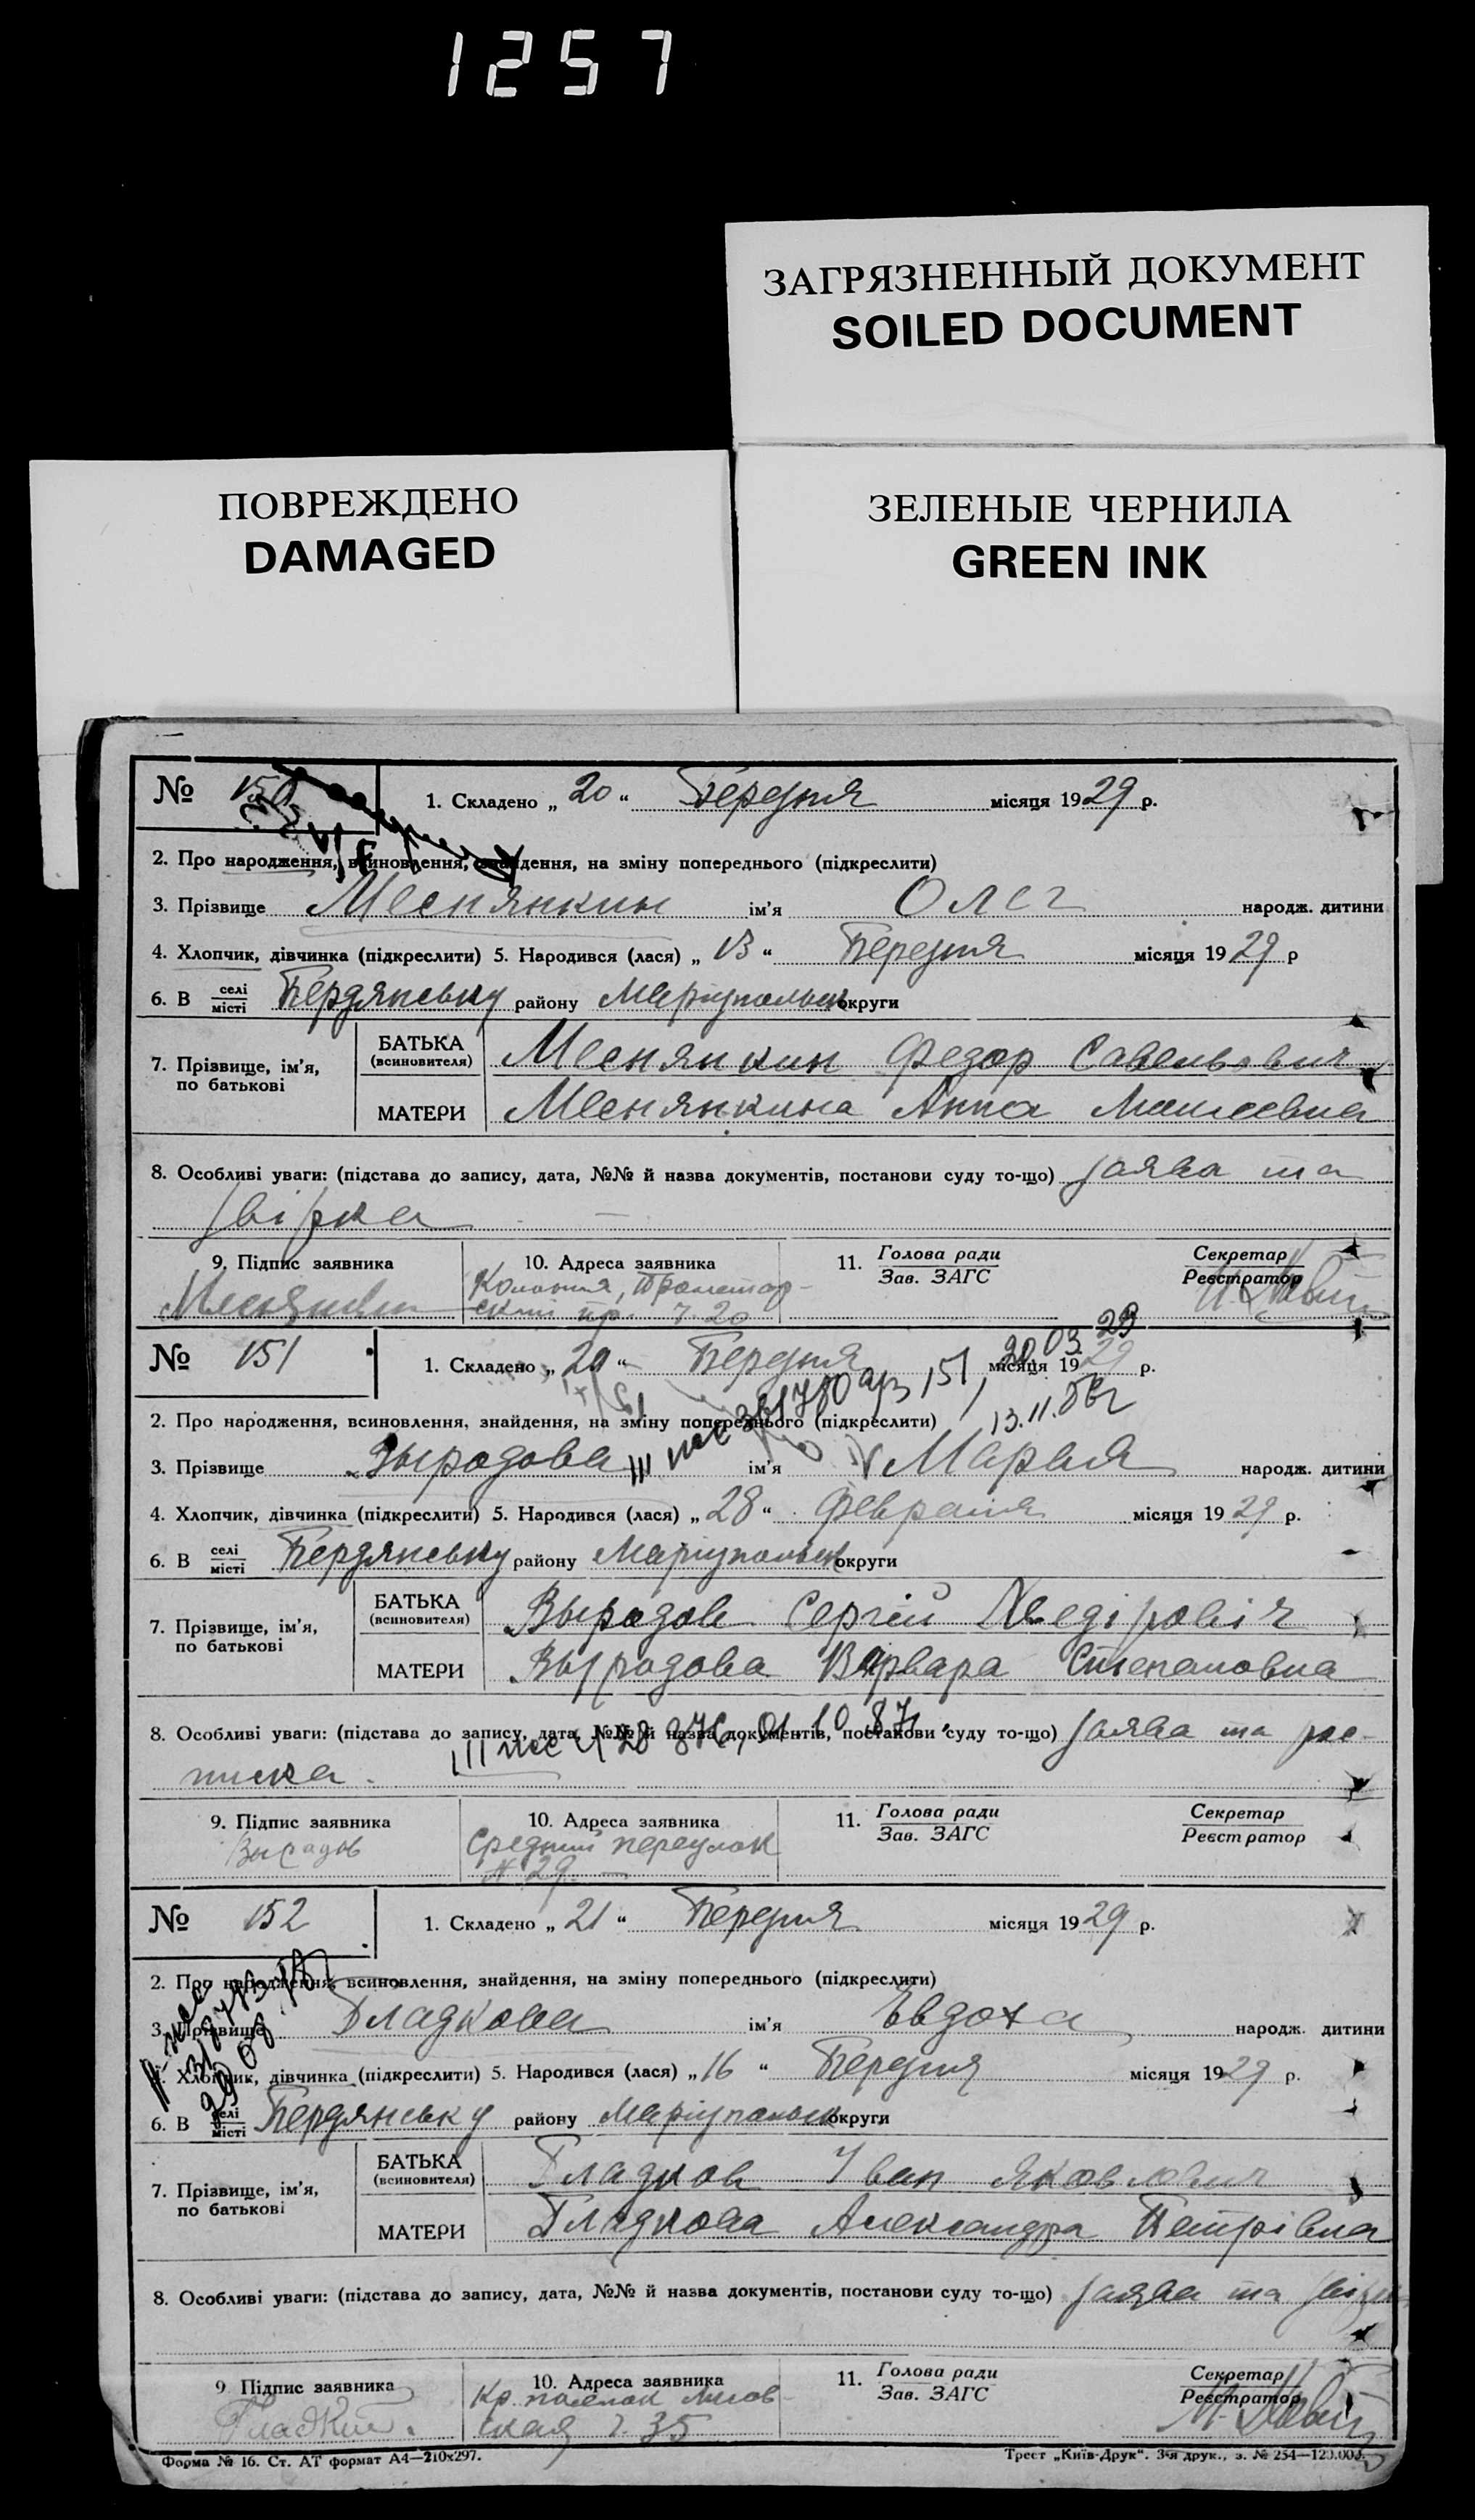 1257
ЗАГРЯЗНЕННЫЙ ДОКУМЕНТ
SOILED DOCUMENT
ПОВРЕЖДЕНО
DAMAGED
ЗЕЛЕНЫЕ ЧЕРНИЛА
GREEN INK
№ 150
1. Складено „ 20 “ Березня місяця 1929 р.
2. Про народження, всиновлення, знайдення, на зміну попереднього (підкреслити)
3. Прізвище Меснянкин ім’я Олег народж. дитини
4. Хлопчик, дівчинка (підкреслити) 5. Народився (лася) „ 13 “ Березня місяця 1929 р
6. В селі/місті Бердянську району Маріупольськ округи
7. Прізвище, ім’я, по батькові
БАТЬКА (всиновителя) Меснянкин Федор Савельевич
МАТЕРИ Меснянкина Анна
8. Особливі уваги: (підстава до запису, дата, №№ й назва документів, постанови суду то-що) заява та
звірка
9. Підпис заявника 10. Адреса заявника 11. Голова ради Секретар
Зав. ЗАГС Реєстратор
Колония, Пролетар-
ский пр. ч. 20
№ 151
20 03 29
1. Складено „ 20 “ Березня місяця 1929 р.
III пос 361780 а/з 151,
13.11.
2. Про народження, всиновлення, знайдення, на зміну попереднього (підкреслити)
3. Прізвище Выродова ім’я Мария народж. дитини
4. Хлопчик, дівчинка (підкреслити) 5. Народився (лася) „ 28 “ Февраля місяця 1929 р.
6. В селі/місті Бердянську району Маріупольськ округи
7. Прізвище, ім’я, по батькові
БАТЬКА (всиновителя) Выродов Сергій
МАТЕРИ Выродова Варвара Степановна
8. Особливі уваги: (підстава до запису, дата, №№ й назва документів, постанови суду то-що) заява та рос-
писка.
9. Підпис заявника 10. Адреса заявника 11. Голова ради Секретар
Зав. ЗАГС Реєстратор
Выродов Средний переулок
№ 29
№ 152
1. Складено „ 21 “ Березня місяця 1929 р.
2. Про народження, всиновлення, знайдення, на зміну попереднього (підкреслити)
3. Прізвище Гладкова ім’я Євдоха народж. дитини
4. Хлопчик, дівчинка (підкреслити) 5. Народився (лася) „ 16 “ Березня місяця 1929 р.
6. В селі/місті Бердянську району Маріупольськ округи
7. Прізвище, ім’я, по батькові
БАТЬКА (всиновителя) Гладков Іван Яковлевич
МАТЕРИ Гладкова Александра Петрівна
8. Особливі уваги: (підстава до запису, дата, №№ й назва документів, постанови суду то-що) заява та
9. Підпис заявника 10. Адреса заявника 11. Голова ради Секретар
Зав. ЗАГС Реєстратор
ч. 35
Форма № 16. Ст. АТ формат А4—210х297.
Трест „Київ-Друк“. 3-я друк., з. № 254—120.000.